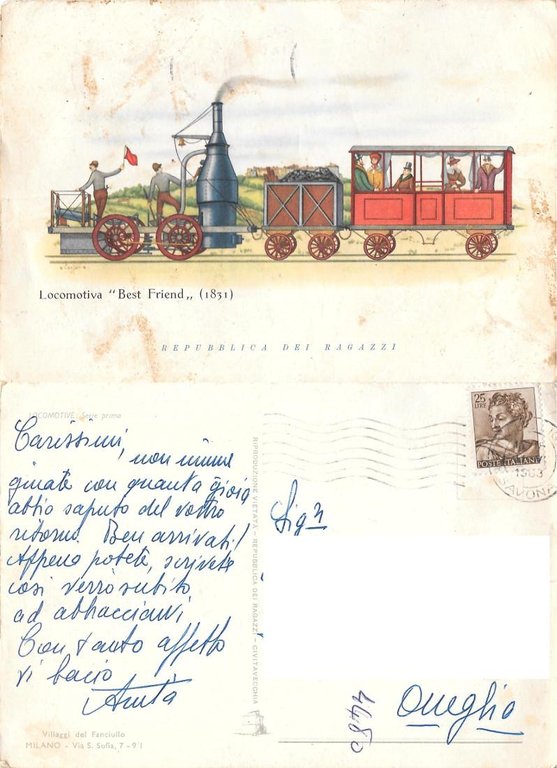 Locomotiva "Best Friend„ (1831)
REPUBBLICA DEI RAGAZZI
LOCOMOTIVE Serie prima
Carissimi, non imma
ginate con quanta gioia
abbio saputo del vostro
ritorno. Ben arrivati!
Appena potete, scrivete
così verrò subito
ad abbracciarvi
Con tanto affetto
vi bacio
Villaggi del Fanciullo
MILANO - Via S. Sofia, 7 - 91
RIPRODUZIONE VIETATA - REPUBBLICA DEI RAGAZZI - CIVITAVECCHIA
25
LIRE
POSTE ITALIANE
1963
SAVONA
Sig.
Oneglia
4480